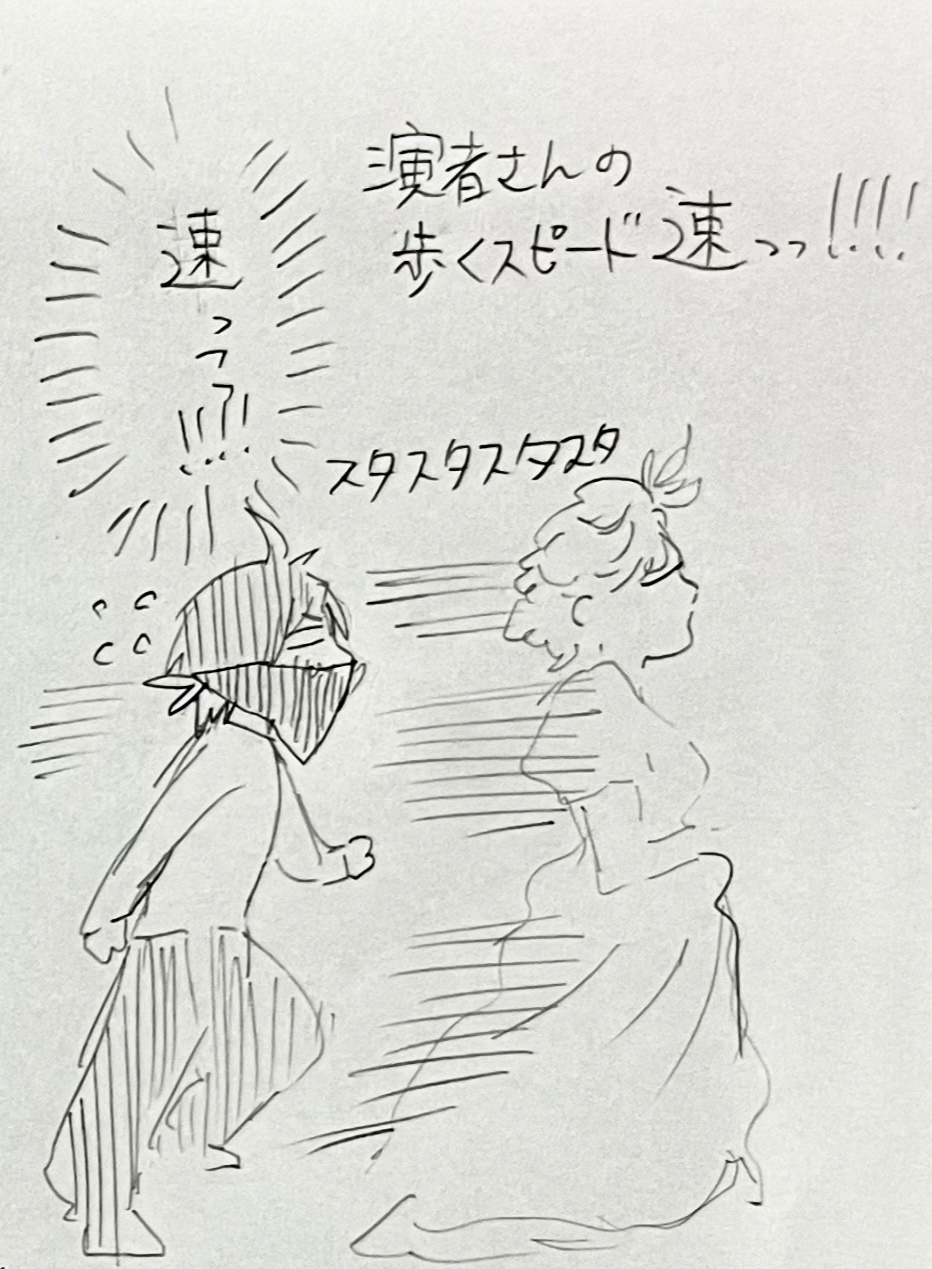 演者さんの
歩くスピード速っっ!!!!
速っっ!!?!
スタスタスタスタ